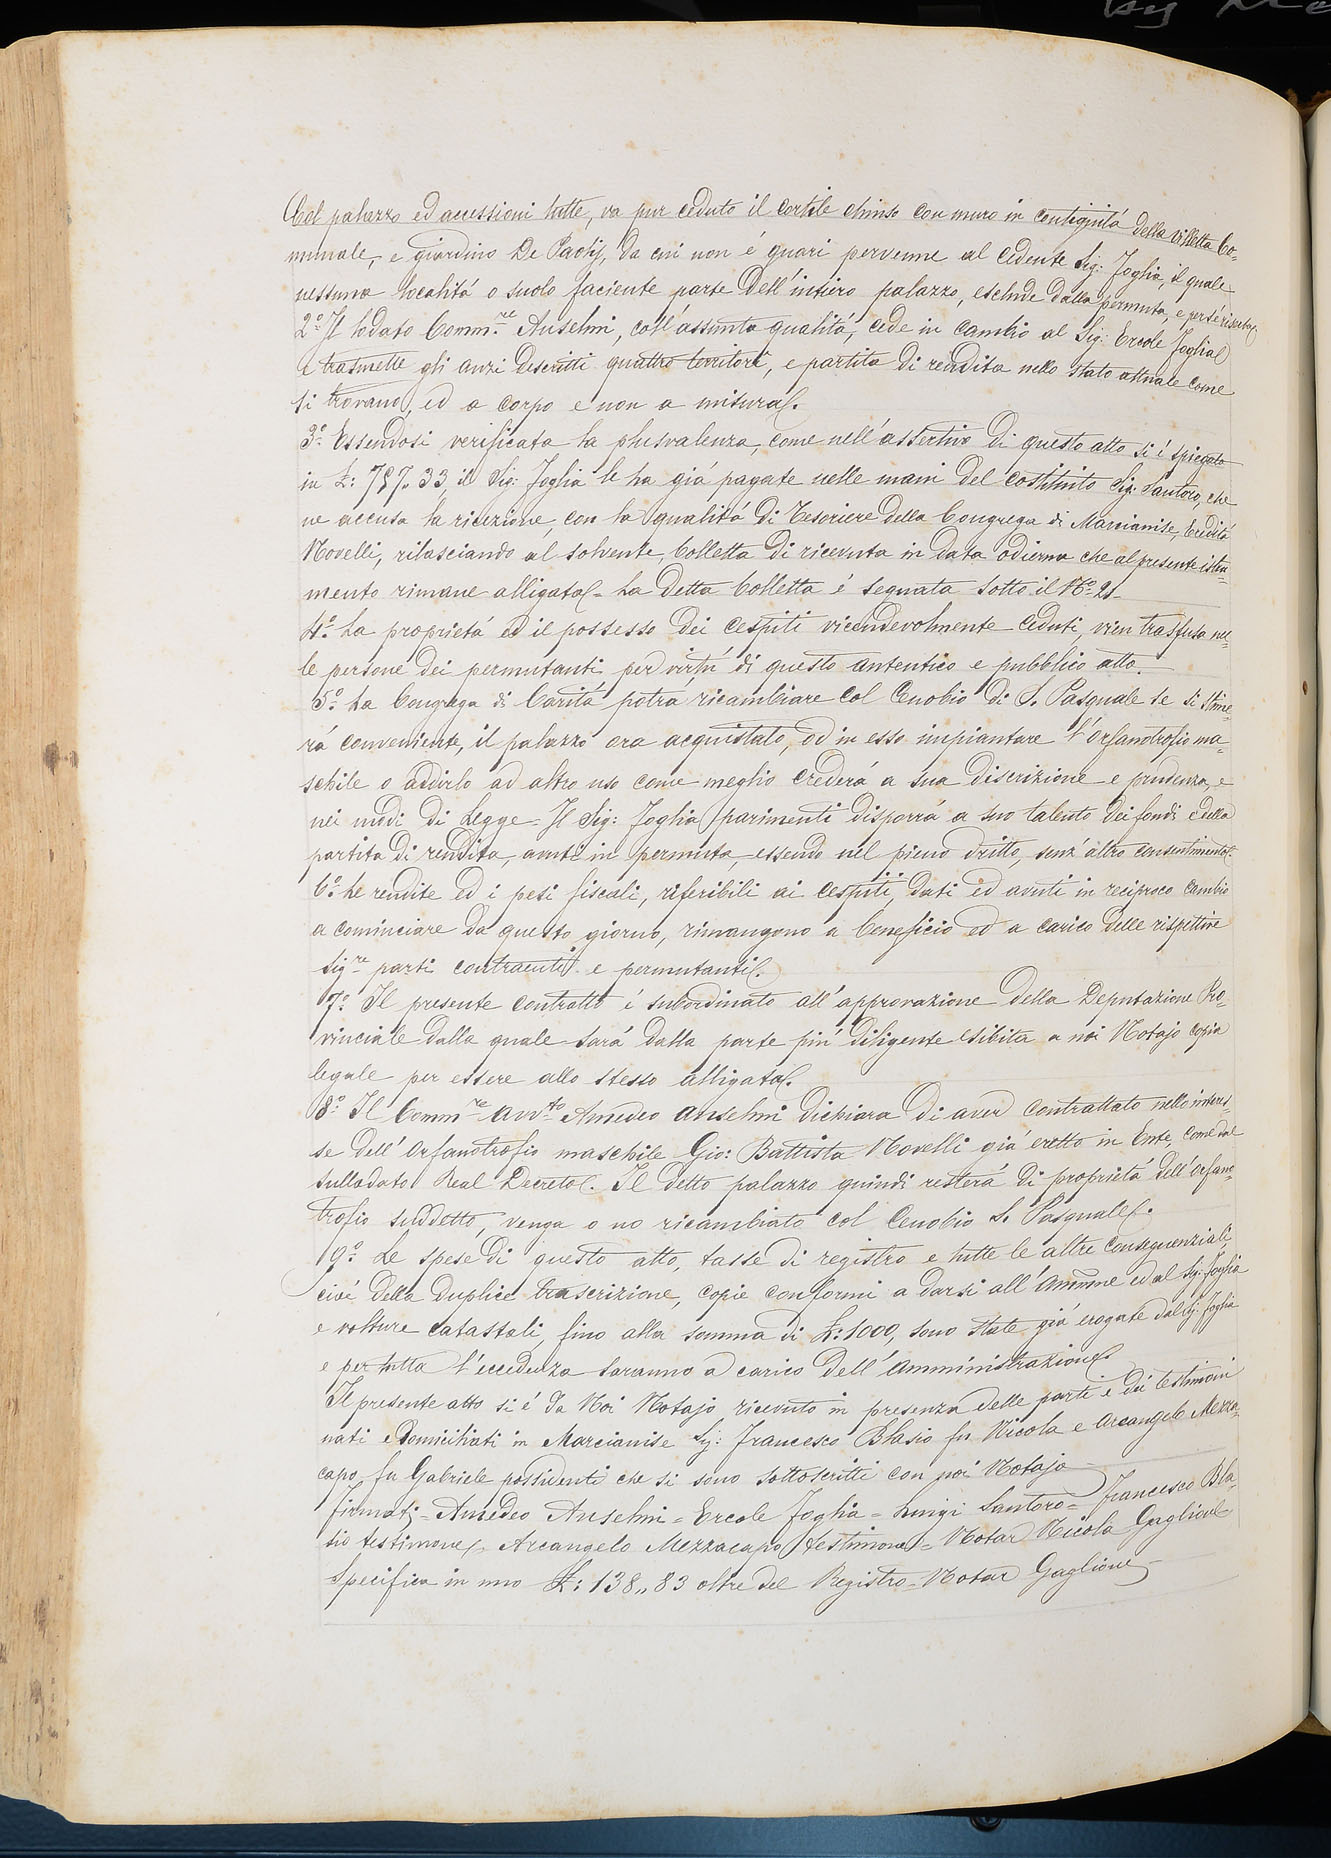 by
Col palazzo ed accessioni tutte, va pur ceduto il cortile chiuso con muro in contiguità della villetta Co=
munale, e giardino De Paolis, da cui non é guari pervenne al cedente Sig: Foglia, il quale
nessuna località o suolo faciente parte dell'intiero palazzo, esclude dalla permuta, e per sé riserba.
2.º Il lodato Comm.re Anselmi, coll'assunta qualità, cede in cambio al Sig: Ercole Foglia
e trasmette gli anzi descritti quattro territorî, e partita di rendita nello stato attuale come
si trovano, ed a corpo e non a misura.
3.º Essendosi verificata la plusvalenza, come nell'assertiva di questo atto si é spiegato
in £: 757,,33 il Sig: Foglia le ha già pagate nelle mani del costituito Sig: Santoro, che
ne accusa la ricezione, con la qualità di Tesoriere della Congrega di Marcianise, Eredità
Novelli, rilasciando al solvente bolletta di ricevuta in data odierna che al presente istru=
mento rimane alligata - La detta bolletta é segnata sotto il Nº 21
4.º La proprietà ed il possesso dei cespiti vicendevolmente ceduti, vien trasfusa nel=
le persone dei permutanti, per virtù di questo autentico e pubblico atto.
5.º La Congrega di Carità potrà ricambiare col Cenobio di S. Pasquale se si stime=
rà conveniente, il palazzo ora acquistato, ed in esso impiantare l'Orfanotrofio ma=
schile o addirlo ad altro uso come meglio crederà a sua discrizione e prudenza, e
nei modi di Legge - Il Sig: Foglia parimenti disporrà a suo talento dei fondi e della
partita di rendita, avuti in permuta, essendo nel pieno dritto, senz'altro consentimento.
6.º Le rendite ed i pesi fiscali, riferibili ai cespiti, dati ed avuti in reciproco cambio
a cominciare da questo giorno, rimangono a beneficio ed a carico delle rispettive
Sig.re parti contraenti e permutanti.
7.º Il presente contratto é subordinato all'approvazione della Deputazione Pro=
vinciale dalla quale sarà dalla parte più diligente esibita a noi Notajo copia
legale per essere allo stesso alligata.
8.º Il Comm.re Avv.to Amedeo Anselmi dichiara di aver contrattato nello interes=
se dell'Orfanotrofio maschile Gio: Battista Novelli già eretto in Ente, come dal
sullodato Real Decreto. Il detto palazzo quindi resterà di proprietà dell'Orfano=
trofio suddetto, venga o no ricambiato col Cenobio S. Pasquale.
9.º Le spese di questo atto, tasse di registro e tutte le altre consequenziali,
cioé della duplice trascrizione, copie conformi a darsi all'Ammne ed al Sig: Foglia
e volture catastali, fino alla somma di £: 1000, sono state già erogate dal Sig: Foglia
e per tutta l'eccedenza saranno a carico dell'Amministrazione.
Il presente atto si é da Noi Notajo ricevuto in presenza delle parti e dei testimoni
nati e domiciliati in Marcianise Sig: Francesco Blasio fu Nicola e Arcangelo Mezza=
capo fu Gabriele possidenti che si sono sottoscritti con noi Notajo
Firmati - Amedeo Anselmi = Ercole Foglia = Luigi Santoro = Francesco Bla=
sio testimone, Arcangelo Mezzacapo testimone = Notar Nicola Gaglione
Specifica in uno £: 138,,83 oltre del Registro = Notar Gaglione